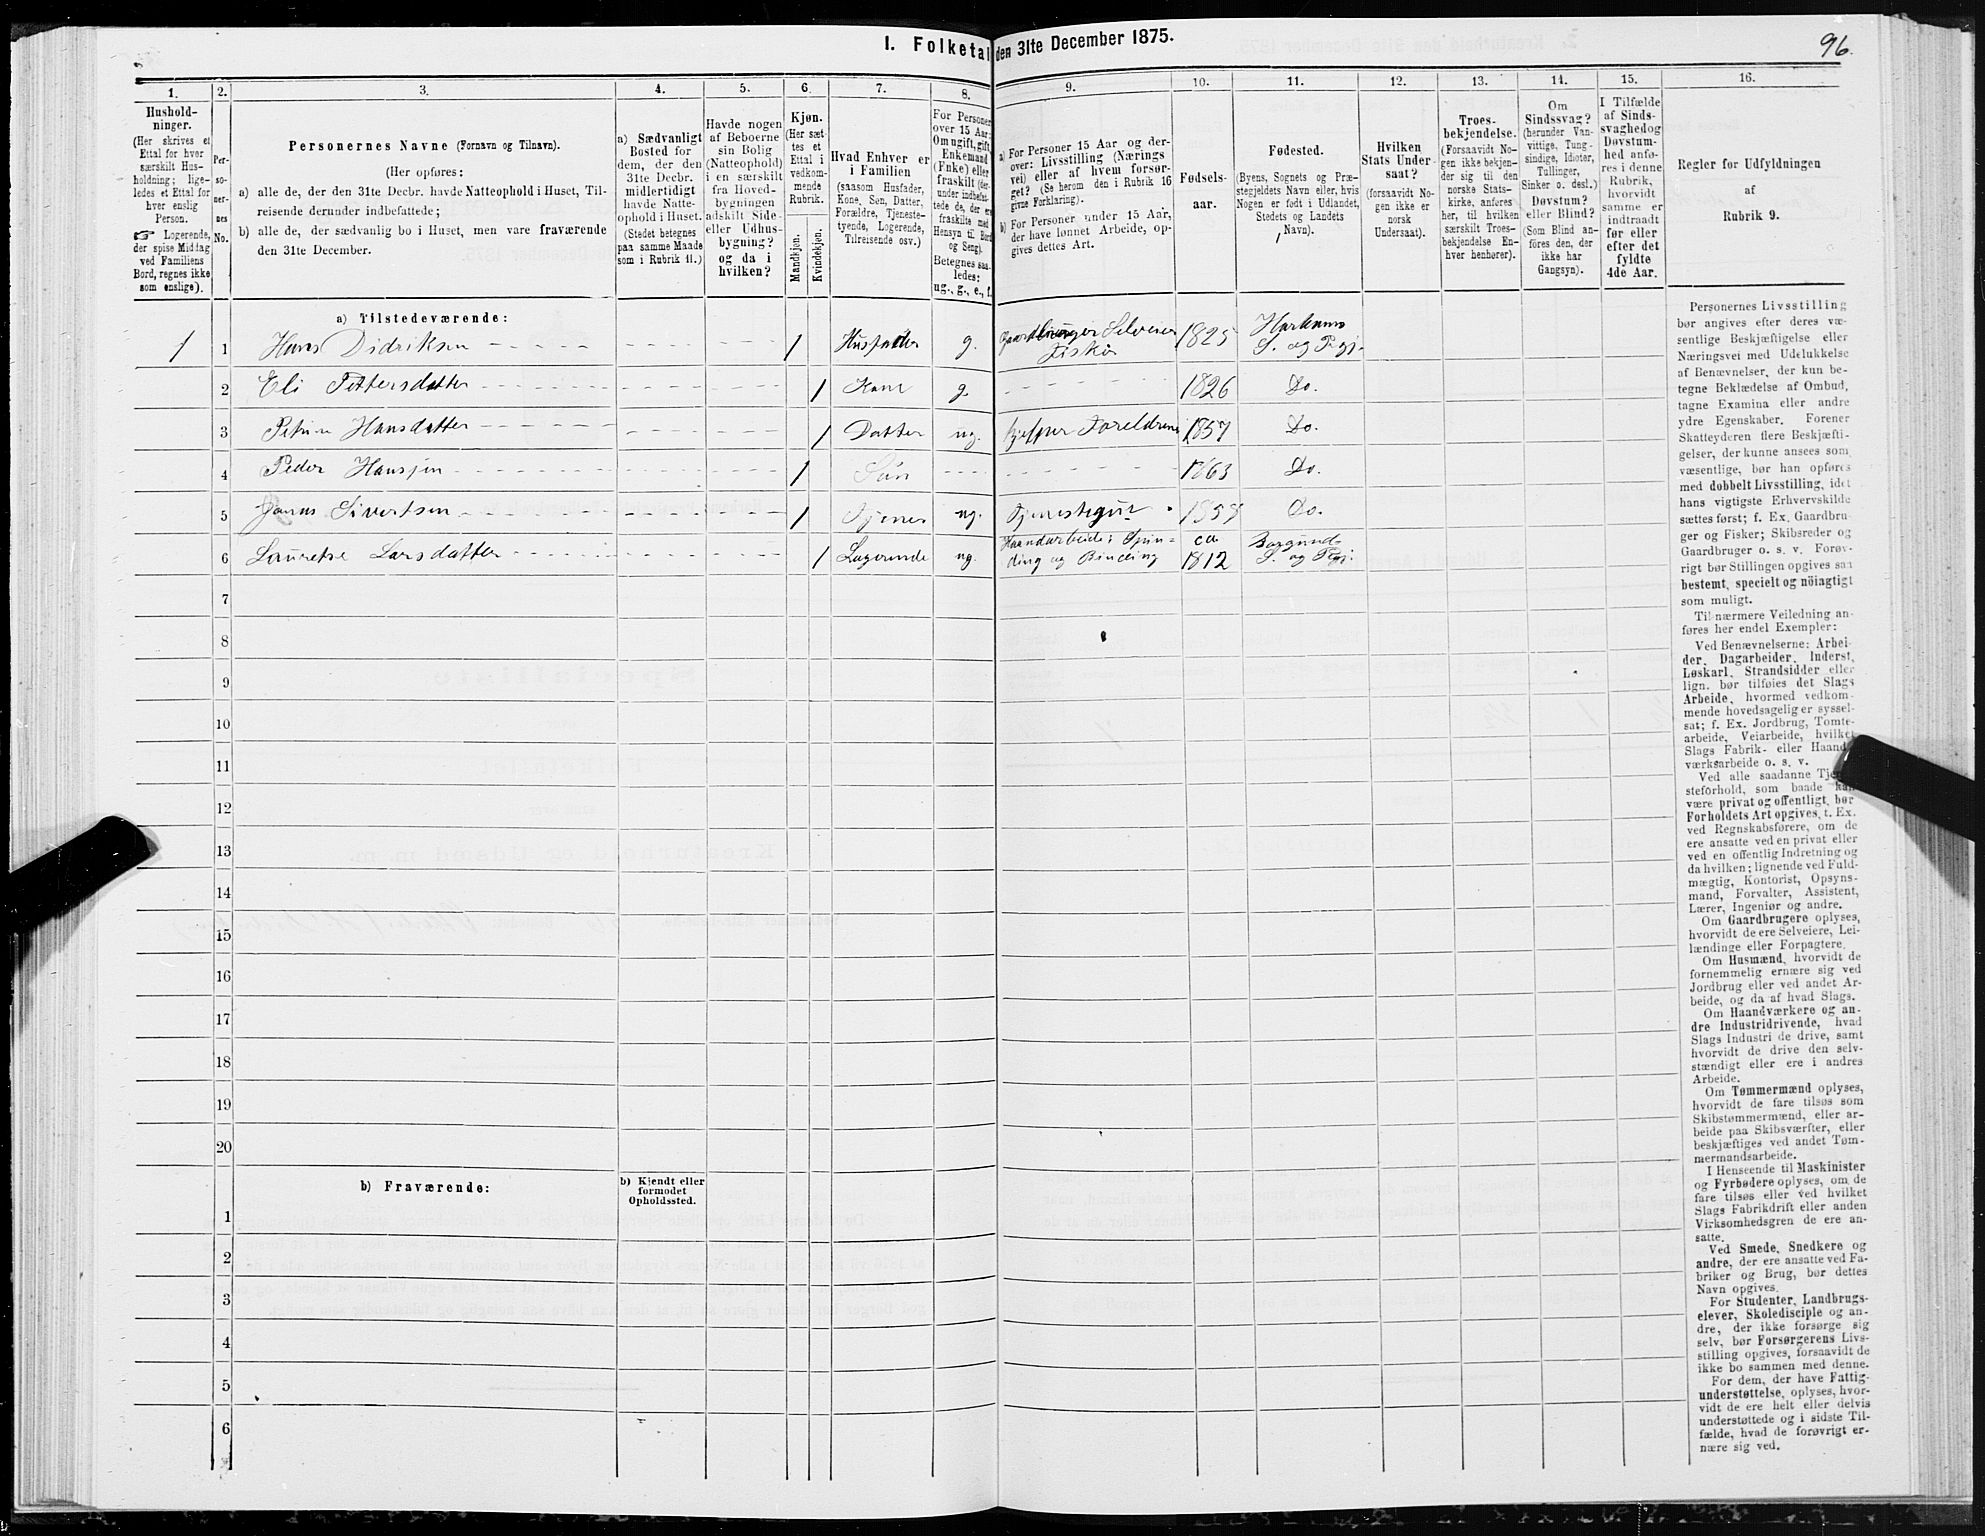 I. Folketal den 31te December 1875.
96.
1.
Hushold-
ninger.
(Her skrives et
Ettal for hver
særskilt Hus-
holdning; lige-
ledes et Ettal for
hver enslig
Person.
☞ Logerende,
der spise Middag
ved Familiens
Bord, regnes ikke
som enslige).
2.
Per-
so-
ner-
nes
No.
3.
Personernes Navne (Fornavn og Tilnavn).
(Her opføres:
a) alle de, der den 31te Decbr. havde Natteophold i Huset, Til-
reisende derunder indbefattede;
b) alle de, der sædvanlig bo i Huset, men vare fraværende
den 31te December.
4.
a) Sædvanligt
Bosted for
dem, der den
31te Decbr.
midlertidigt
havde Natte-
ophold i Huset.
(Stedet betegnes
paa samme Maade
som i Rubrik 11.)
5.
Havde nogen
af Beboerne
sin Bolig
(Natteophold)
i en særskilt
fra Hoved-
bygningen
adskilt Side-
eller Udhus-
bygning?
og da i
hvilken?
6.
Kjøn.
(Her sæt-
tes et
Ettal i
vedkom-
mende
Rubrik.
Mandkjøn.
Kvindekjøn.
7.
Hvad Enhver er
i Familien
(saasom Husfader,
Kone, Søn, Datter,
Forældre, Tjeneste-
tyende, Logerende,
Tilreisende osv.)
8.
For Personer
over 15 Aar:
Om ugift, gift,
Enkemand
(Enke) eller
fraskilt (der-
under indbefat-
tede de, der ere
fraskilte med
Hensyn til Bord
og Seng).
Betegnes saa-
ledes:
ug., g., e., f.
9.
a) For Personer 15 Aar og der-
over: Livsstilling (Nærings
vei) eller af hvem forsør-
get? (Se herom den i Rubrik 16
givne Forklaring).
b) For Personer under 15 Aar,
der have lønnet Arbeide, op-
gives dettes Art.
10.
Fødsels-
aar.
11.
Fødested.
(Byens, Sognets og Præ-
stegjeldets Navn eller, hvis
Nogen er født i Udlandet,
Stedets og Landets
Navn).
12.
Hvilken
Stats Under-
saat?
(forsaavidt No-
gen ikke er
norsk
Undersaat).
13.
Troes-
bekjendelse.
(Forsaavidt No-
gen ikke bekjen-
der sig til den
norske Stats-
kirke, anføres
her, til hvilken
særskilt Troes-
bekjendelse En-
hver henhører).
14.
Om
Sindssvag?
(herunder Van-
vittige, Tung-
sindige, Idioter,
Tullinger,
Sinker o. desl.)
Døvstum?
eller Blind?
(Som Blind an-
føres den, der
ikke har
Gangsyn).
15.
I Tilfælde
af Sinds-
svaghedog
Døvstum-
hed anfø-
res i denne
Rubrik,
hvorvidt
samme er
indtraadt
før eller
efter det
fyldte
4de Aar.
16.
Regler for Udfyldningen
af
Rubrik 9.
a) Tilstedeværende:
1 1 Hans Didriksen 1 Husfader g. Gaardbruger Selveier Fisker 1825 Harhams S. og Prgj.
2 Eli Pettersdatter 1 Kone g. 1826 Do.
3 Petrine Hansdatter 1 Datter ug. hjelper Foreldrene 1857 Do.
4 Peder Hanssen 1 Søn 1863 Do.
5 Jonas Sivertsen 1 Tjener ug. Tjenestegut 1857 Do.
6 Lauretse Larsdatter 1 Logerende ug. Haandarbeide; Spin- ding og Binding ca 1812 Borgunds S. og Prgj.
7
8
9
10
11
12
13
14
15
16
17
18
19
20
b) Fraværende:
b) Kjendt eller
formodet
Opholdssted.
1
2
3
4
5
6
Personernes Livsstilling
bør angives efter deres væ-
sentlige Beskjæftigelse eller
Næringsvei med Udelukkelse
af Benævnelser, der kun be-
tegne Beklædelse af Ombud,
tagne Examina eller andre
ydre Egenskaber. Forener
Skatteyderen flere Beskjæfti-
gelser, der kunne ansees som
væsentlige, bør han opføres
med dobbelt Livsstilling, idet
hans vigtigste Erhvervskilde
sættes først; f. Ex. Gaardbru-
ger og Fisker; Skibsreder og
Gaardbruger o. s. v. Forøv-
rigt bør Stillingen opgives saa
bestemt, specielt og nöiagtigt
som muligt.
Til nærmere Veiledning an-
føres her endel Exempler:
Ved Benævnelserne: Arbei-
der, Dagarbeider, Inderst,
Løskarl, Strandsidder eller
lign. bør tilføies det Slags
Arbeide, hvormed vedkom-
mende hovedsagelig er syssel-
sat; f. Ex. Jordbrug, Tomte-
arbeide, Veiarbeide, hvilket
Slags Fabrik- eller Haand-
værksarbeide o. s. v.
Ved alle saadanne Tjene-
steforhold, som baade kan
være privat og offentligt, bør
Forholdets Art opgives, t. Ex.
ved Regnskabsførere, om de
ere ansatte ved en privat eller
ved en offentlig Indretning og
da hvilken; lignende ved Fuld-
mægtig, Kontorist, Opsyns-
mand, Forvalter, Assistent,
Lærer, Ingeniør og andre.
Om Gaardbrugere oplyses,
hvorvidt de ere Selveiere, Lei-
lændinge eller Forpagtere.
Om Husmænd, hvorvidt de
fornemmelig ernære sig ved
Jordbrug eller ved andet Ar-
beide, og da af hvad Slags.
Om Haandværkere og an-
dre Industridrivende, hvad
Slags Industri de drive, samt
hvorvidt de drive den selv-
stændigt eller ere i andres
Arbeide.
Om Tømmermænd oplyses,
hvorvidt de fare tilsøs som
Skibstømmermænd, eller ar-
beide paa Skibsværfter, eller
beskjæftiges ved andet Tøm-
mermandsarbeide.
I Henseende til Maskinister
og Fyrbødere oplyses, om de
fare tilsøs eller ved hvilket
Slags Fabrikdrift eller anden
Virksomhedsgren de ere an-
satte.
Ved Smede, Snedkere og
andre, der ere ansatte ved Fa-
briker og Brug, bør dettes
Navn opgives.
For Studenter, Landbrugs-
elever, Skoledisciple og an-
dre, der ikke forsørge sig
selv, bør Forsørgerens Livs-
stilling opgives, forsaavidt de
ikke bo sammen med denne.
For dem, der have Fattig-
understøttelse, oplyses, hvor-
vidt de ere helt eller delvis
understøttede og i sidste Til-
fælde, hvad de forøvrigt er-
nære sig ved.